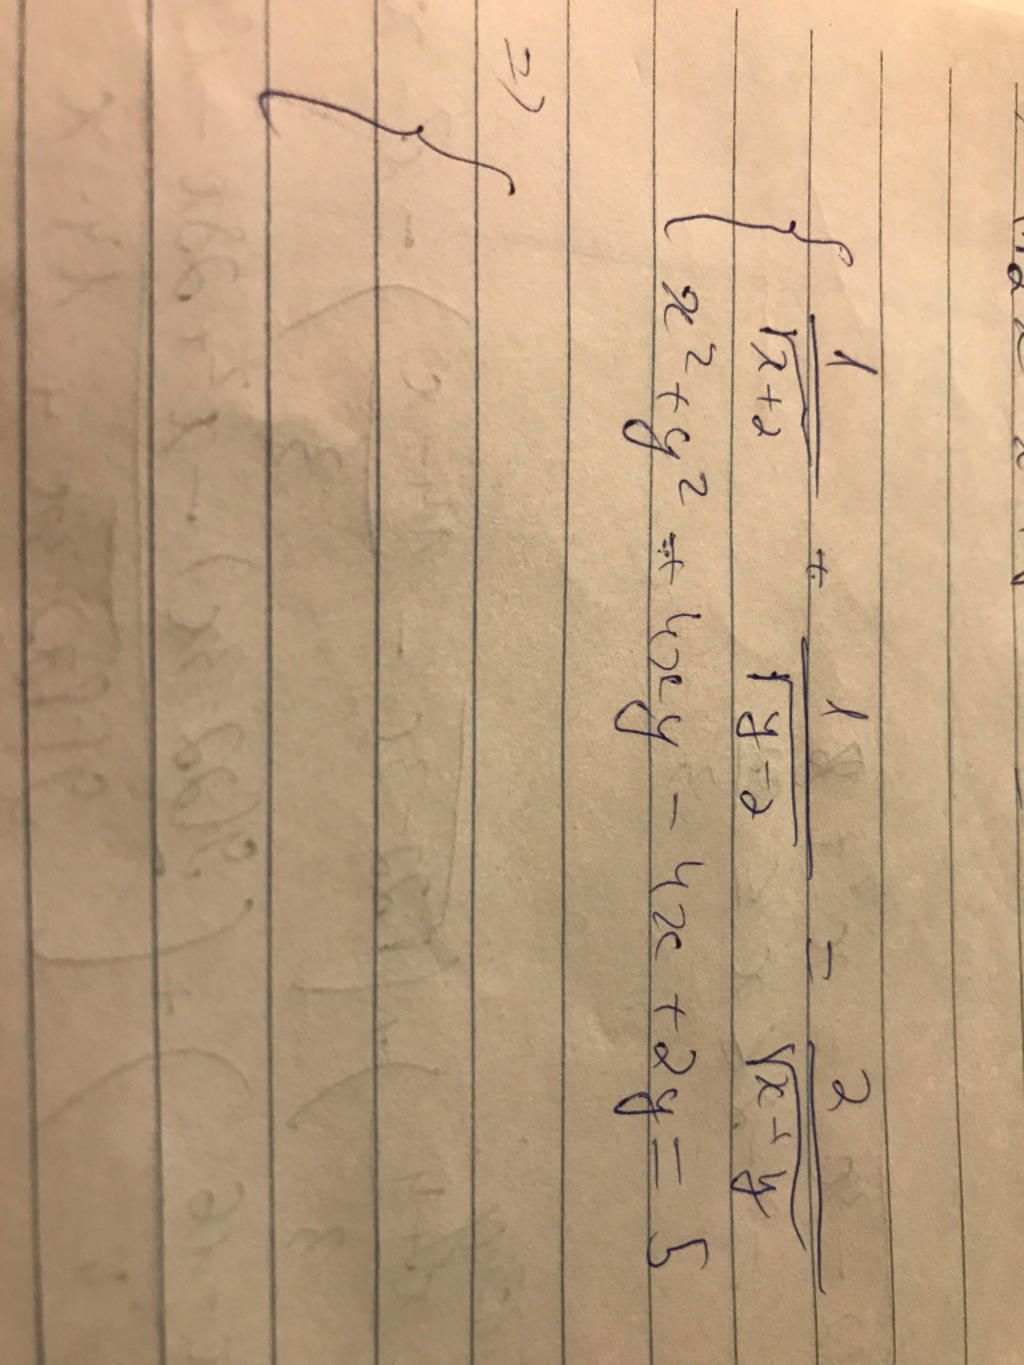 { 1/√(x+2) + 1/√(y-2) = 2/√(x+y)
x² + y² + 4xy - 4x + 2y = 5
=> {